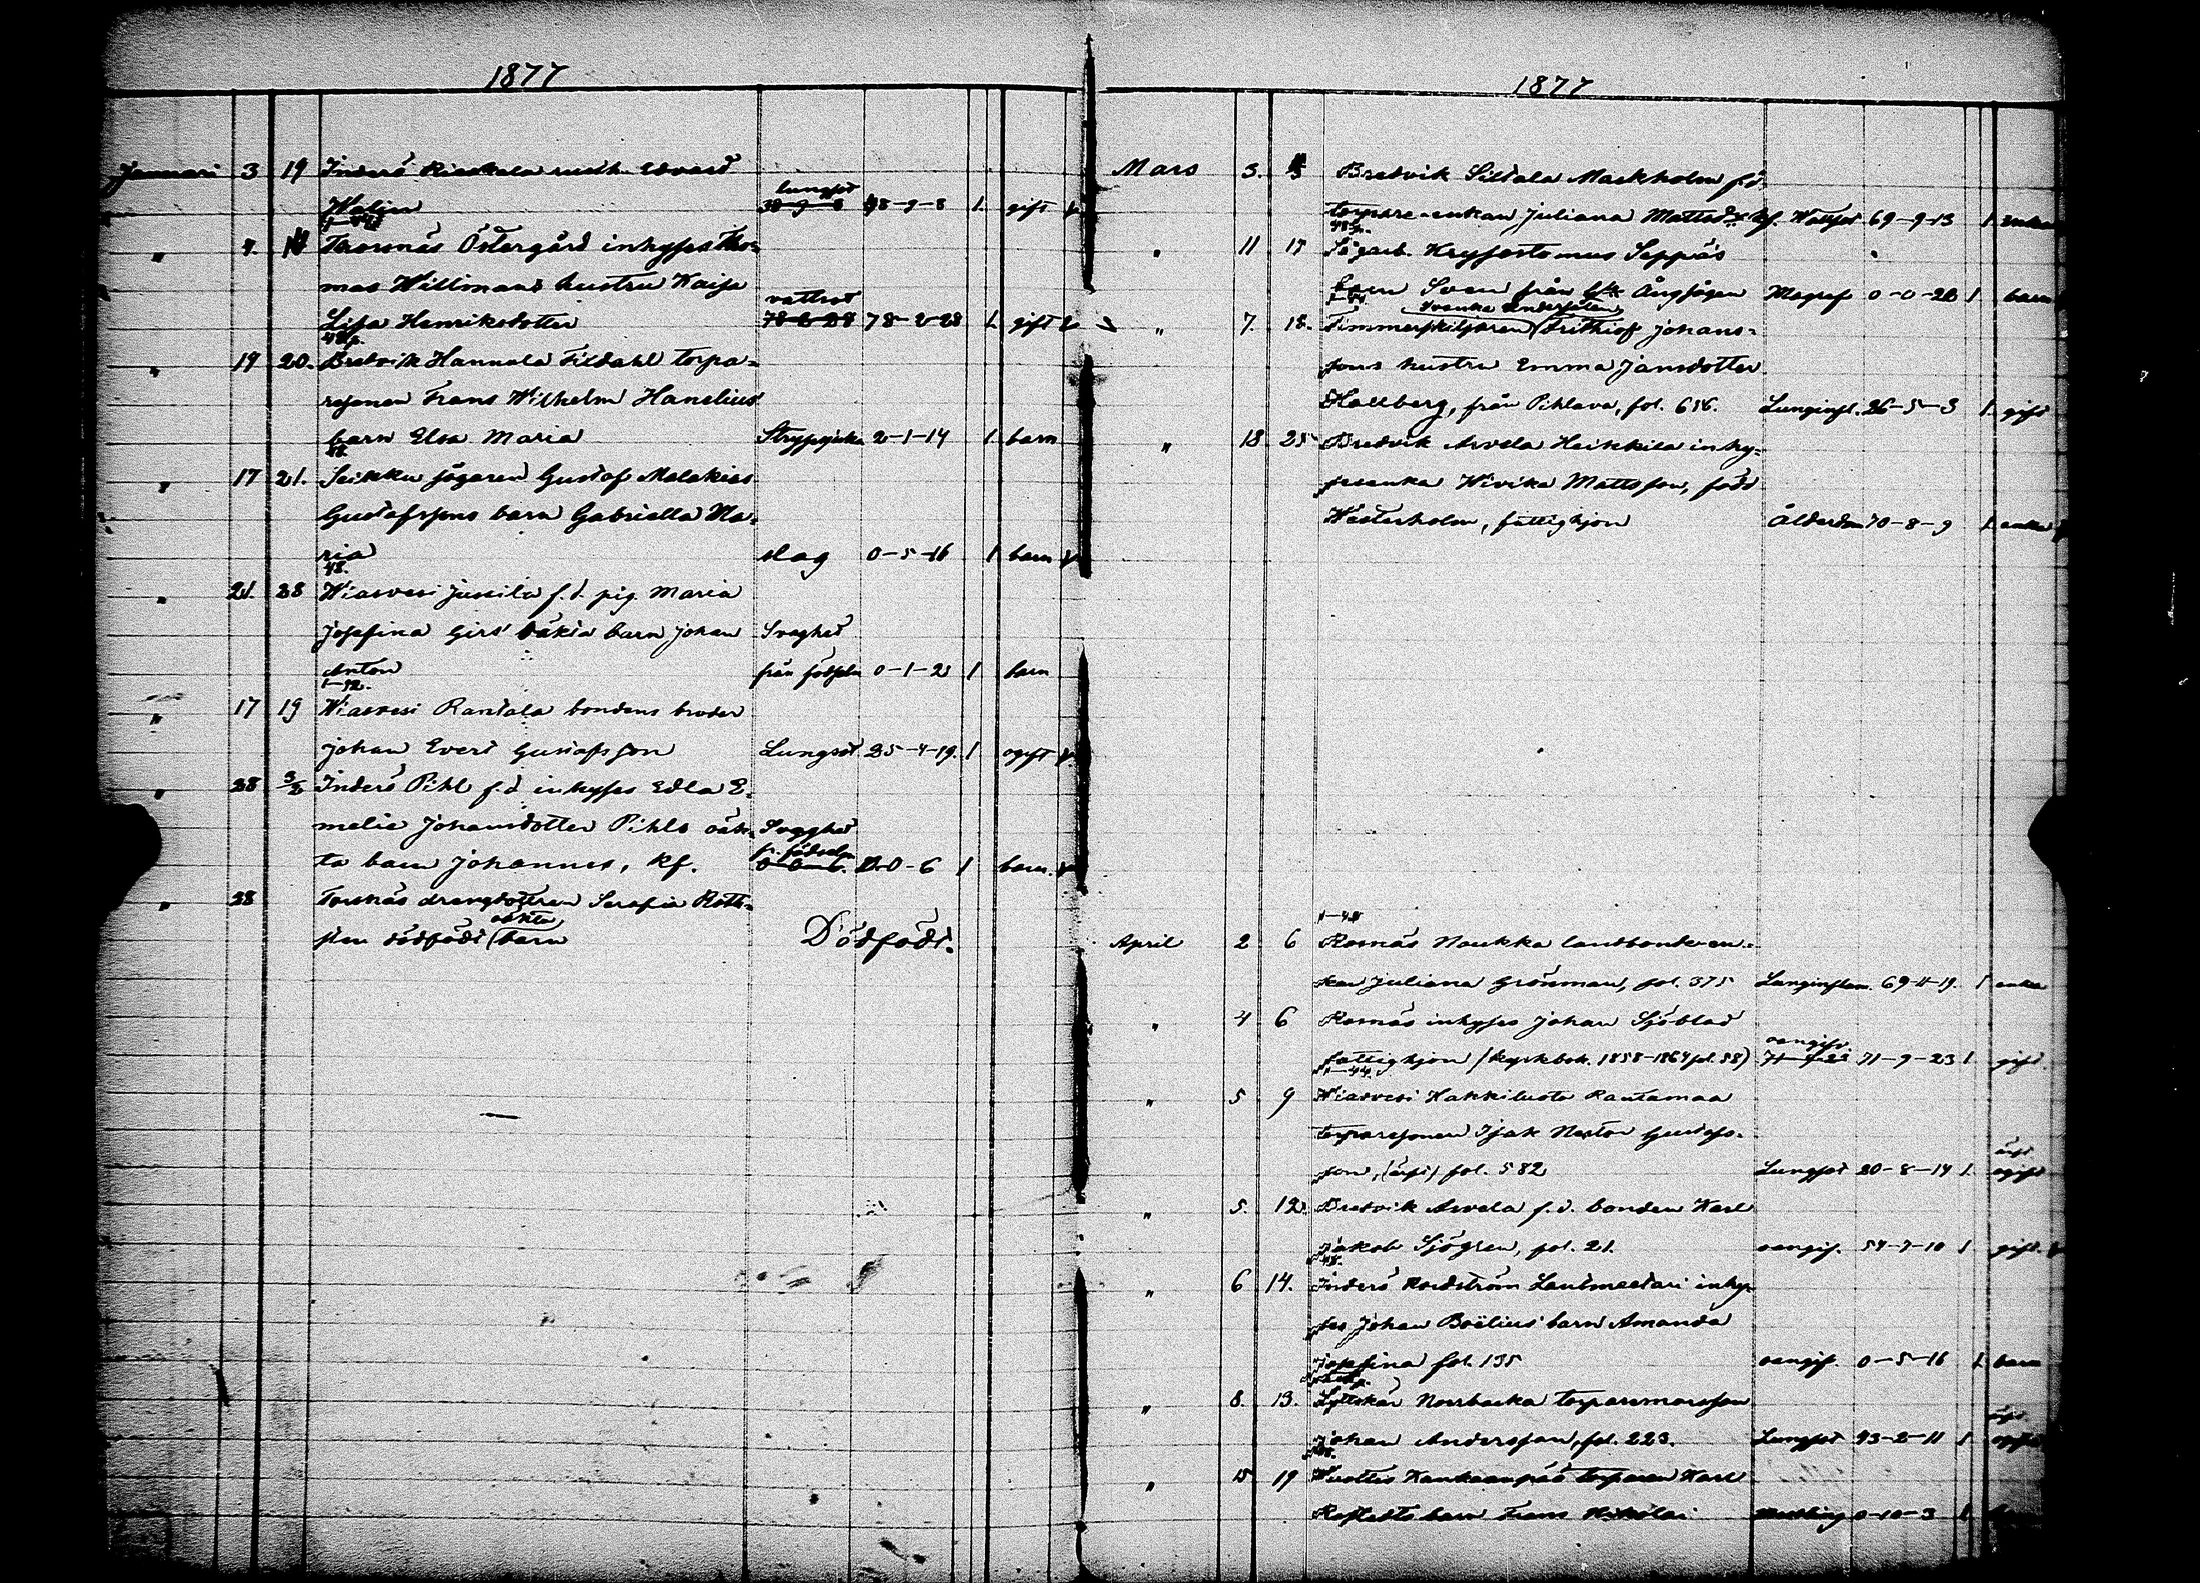 1877
Januari 3 19 Inderö Riaskala Edvard
Waljus lungsot 38-9-8 1 gift
" 4. Tuorsnäs Östergård inhyses Tho-
mas Willmans hustru Kaisa
Lisa Henriksdotter vattsot 78-2-28 78-2-28 1 gift
" 19 20. Bredvik Hannula Fixdahl torpa-
resonen Frans Wilhelm Hanelius
barn Elsa Maria Strypsjuka 2-1-14 1 barn
" 17 21. Seikku sågaren Gustaf Malakias
Gustafssons barn Gabriella Ma-
ria slag 0-5-16 1 barn
48.
" 21. 28 Wiasvesi Jussila f.d. pig. Maria
Josefina Girs oäkta barn Johan Svaghet
Anton från födseln 0-1-2 1 barn
" 17 19 Wiasvesi Rantala bondens broder
Johan Evert Gustafsson Lungsot 25-4-19. 1 ogift
" 28 3/2 Inderö Pihl f.d. inhyses Edla E-
melie Johansdotter Pihls oäk- Svaghet
ta barn Johannes, kf. fr. födseln 0-0-6. 0-0-6 1 barn.
" 28 Torsnäs drängdottren Serafia Roth-
sten dödfödt oäkta barn Dödfödt.
1877
Mars 3. Bredvik Sildala Markholm f.d.
torpare-enkan Juliana Mattsd:r kf. Wattsot 69-9-13 1 enka
" 11 17 Sågarb. Krysostomus Seppäs
barn Sven från Ångsågen Magref 0-0-28 1 barn
" 7. 18. Timmerskiljaren Frithiof Johans-
sons hustru Emma Jansdotter
Hallberg, från Pihlava, fol. 656. Lunginfl. 26-5-3 1. gift
" 18 25 Bredvik Arvela Heikkila inhy-
sesenka Wivika Mattsson, född
Westerholm, fattighjon Ålderdom 70-8-9 1 enka
April 2 6 Rosnäs Noukka landbonde-en-
kan Juliana Grönman, fol. 375 Lunginflam. 69-11-19. 1 enka
" 4 6 Rosnäs inhyses Johan Sjöblad
fattighjon (kyrkbok. 1858-1867 fol. 58) oangifv. 71-9-23 1. gift.
1-44
" 5 9 Wiasvesi Hakkiluoto Rantamaa
torparesonen Isak Nestor Gustafs-
son, (äfs) fol. 582 Lungsot 20-8-14 1. ogift
" 5. 12. Bredvik Arvela f.d. bonden Karl
Jakob Sjögren, fol. 21. oangif. 54-7-10 1 gift.
48.
" 6 14. Inderö Nordström Lantmeetari inhy-
ses Johan Boëlius' barn Amanda
Josefina fol. 135 oangif. 0-5-16 1 barn
" 8. 13. Lyttskär Norrbacka torparemågsson
Johan Andersson, fol. 223. Lungsot 43-2-11 1
" 15 19 Kankaanpää torparen Karl
barn Frans Nikolai 0-10-3 1